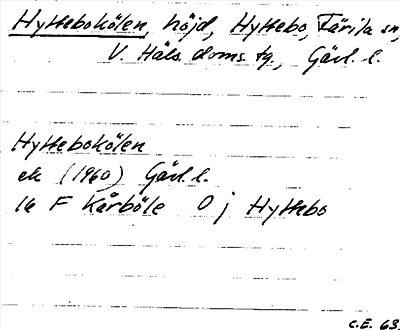 Hyttebokölen, höjd, Hyttebo, Färila sn,
V. Häls. doms. tg., Gävl. l.
Hyttebokölen
ek (1960) Gävl. l.
16 F Kårböle 0 j Hyttebo
C.E. 63.